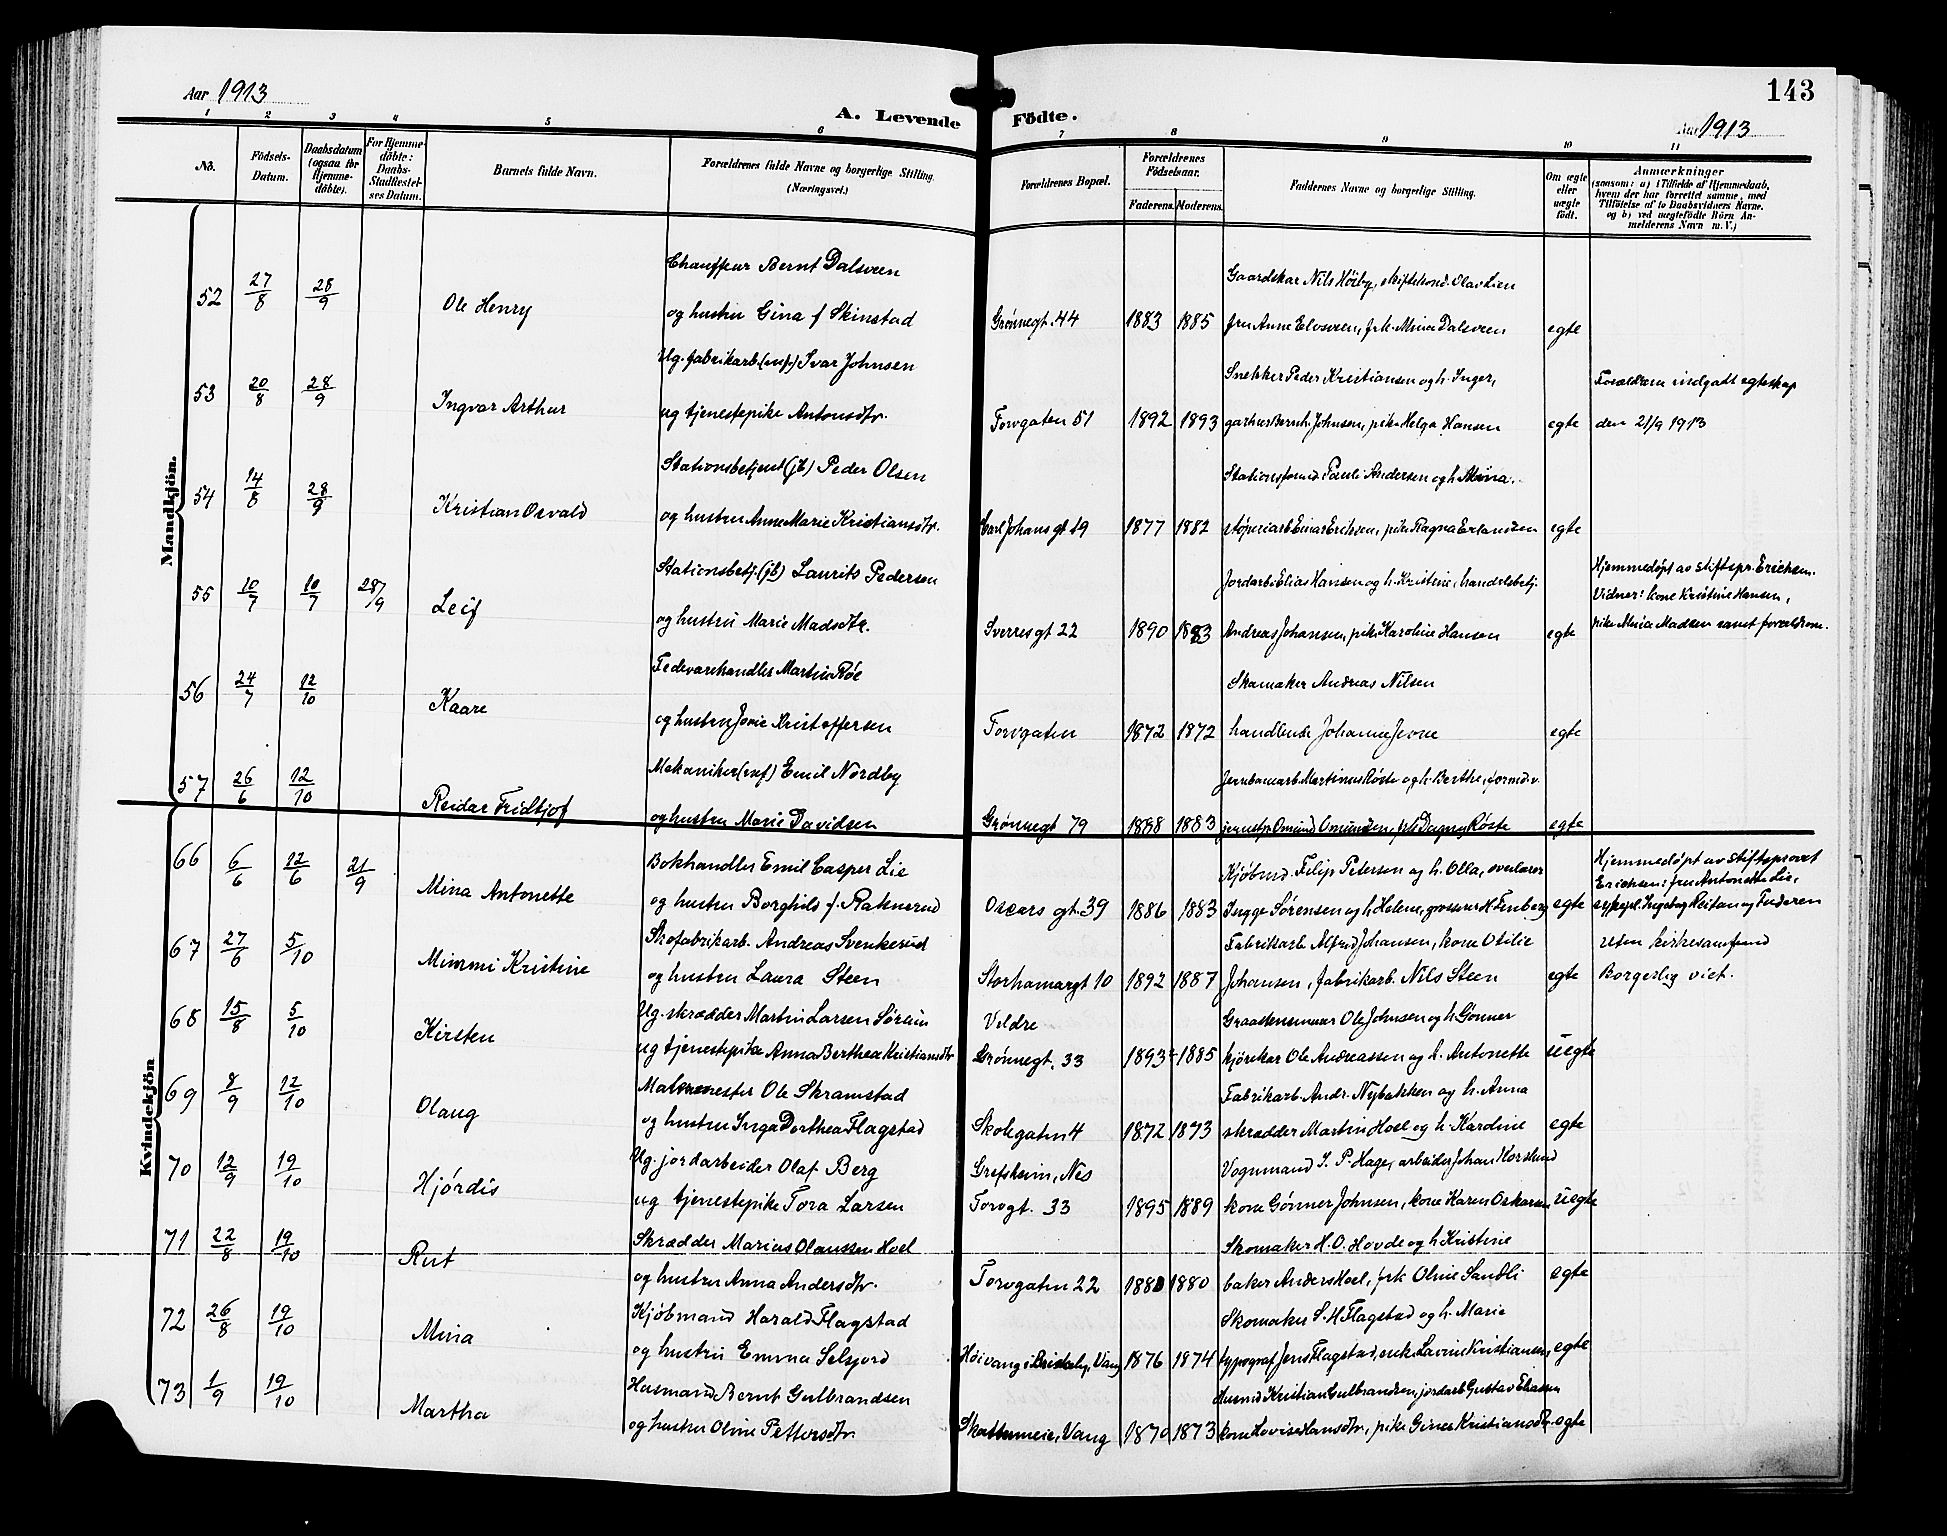 143
Aar 1913
A. Levende Födte.
Aar 1913
1 2 3 4 5 6 7 8 9 10 11
No.
Födsels-Datum.
Daabsdatum (ogsaa for Hjemme-döbte).
For Hjemme-döbte: Daabs-Stadfæstel-ses Datum.
Barnets fulde Navn.
Forældrenes fulde Navne og borgerlige Stilling. (Næringsvei.)
Forældrenes Bopæl.
Forældrenes Födselsaar.
Faderens. Moderens.
Faddernes Navne og borgerlige Stilling.
Om ægte eller uægte födt.
Anmærkninger
(saasom: a) i Tilfælde af Hjemmedaab,
hvem der har forrettet samme, med
Tilföielse af to Daabsvidners Navne,
og b) ved uægtefödte Börn An-
melderens Navn m. V.)
Mandkjön.
52 27/8 28/9 Ole Henry
Chauffeur Bernt Dalsveen
og hustru Gina f Skinstad
Grønnegt. 44 1883 1885
Gaardskar Nils Höiby, Olav Lien
fru Anne Elvsveen, frk. Mina Dalsveen egte
53 20/8 28/9 Ingvar Arthur
Ug. fabrikarb. Ivar Johnsen
ug tjenestepike Antonsdtr.
Torvgaten 51 1892 1893
Snekker Peder Kristiansen og h. Inger,
Bernh. Johnsen, pike Helga Hansen egte
Forældrene indgaat egteskap
den 21/9 1913
54 14/8 28/9 Kristian Osvald
Stationsbetjent (jb) Peder Olsen
og hustru Anne Marie Kristiansdtr.
Karl Johans gt 19 1877 1882
Stationsformd. Pauli Andersen og h.
støperiarb Einar Erichsen, pike Ragna Erlandsen egte
55 10/7 10/7 28/9 Leif
Stationsbetj. (jb) Laurits Pedersen
og hustru Marie Madsdtr.
Sverresgt 22 1890 1883
Jordarb Elias Hansen og h. Kristine, handelsbetj.
Andreas Johansen, pike Karoline Hansen egte
Hjemmedøpt av stiftspr. Erichsen.
Vidner: kone Kristine Hansen,
pike Maria Madsen samt forældrene.
56 24/7 12/10 Kaare
Fedevarehandler Martin Røe
og hustru Kristoffersen
Torvgaten 1872 1872
Skomaker Andreas Nilsen
handlende Johanne Jevne egte
57 26/6 12/10 Reidar Fridtjof
Mekaniker Emil Nordby
og hustru Marie Davidsen
Grønnegt 79 1888 1883
Jernbanearb. Martinus Röste og h. Berthe,
Omund Omundsen, frk Dagny Röste egte
Kvindekjön
66 6/6 12/6 21/9 Mina Antonette
Bokhandler Emil Casper Lie
og hustru Borghild f. Raknerud
Oscars gt. 39 1886 1883
Kjøbmd. Filip Petersen og h. Olla, overlærer
Ingge Sørensen og h Helene, grosserer H Fenberg egte
Hjemmedøpt av stiftsprovst
Erichsen: fru Antonette Lie,
sykepl. Ingeborg Neitan og Faderen
67 27/6 5/10 Mimmi Kristine
Skofabrikarb. Andreas Svenkerud
og hustru Laura Steen
Storhamargt 10 1892 1887
Fabrikarb. Alfred Johansen, kone Otilie
Johansen, fabrikarb. Nils Steen egte
uten kirkesamfund
Borgerlig viet.
68 15/8 5/10 Kirsten
Ug. skrædder Martin Larsen Sørlien
ug tjenestepike Anna Berthea Kristiansdtr
Veldre
Grønnegt. 33 1893 1885
Ole Johnsen og h Gønner
kjörekar Ole Andreassen og h. Antonette uegte
69 8/9 12/10 Olaug
Malermester Ole Skramstad
og hustru Inga Dorthea Flagstad
Skolegaten 4 1872 1873
Fabrikarb. Andr. Nybakken og h. Anna
skrædder Martin Hoel og h. Karoline egte
70 12/9 19/10 Hjördis
Ug. jordarbeider Olaf Berg
ug tjenestepike Tora Larsen
Grefsheim, Nes
Torvgt. 33 1895 1889
Vognmand I. P. Hage, arbeider Johan Korslund
kone Gønner Johnsen, kone Karen Oskarsen uegte
71 22/8 19/10 Rut
Skrædder Marius Olaussen Hoel
og hustru Anna Andersdtr.
Torvgaten 22 1880 1880
Skomaker H. O. Hovde og h Kristine
baker Anders Hoel, frk Oline Sandli egte
72 26/8 19/10 Mina
Kjøbmand Harald Flagstad
og hustru Emma Selsjord
Høivang i Vang 1876 1874
Skomaker S. H Flagstad og h. Marie
typograf Jens Flagstad, enke Lavine Kristiansen, egte
73 1/9 19/10 Martha
Husmand Bernt Gulbrandsen
og hustru Oline Pettersdtr.
Vang 1870 1873
Husmd Kristian Gulbrandsen, jordarb Gustav Eliassen
kone Lovise Hansdtr, pike Gina Kristiansdtr. egte